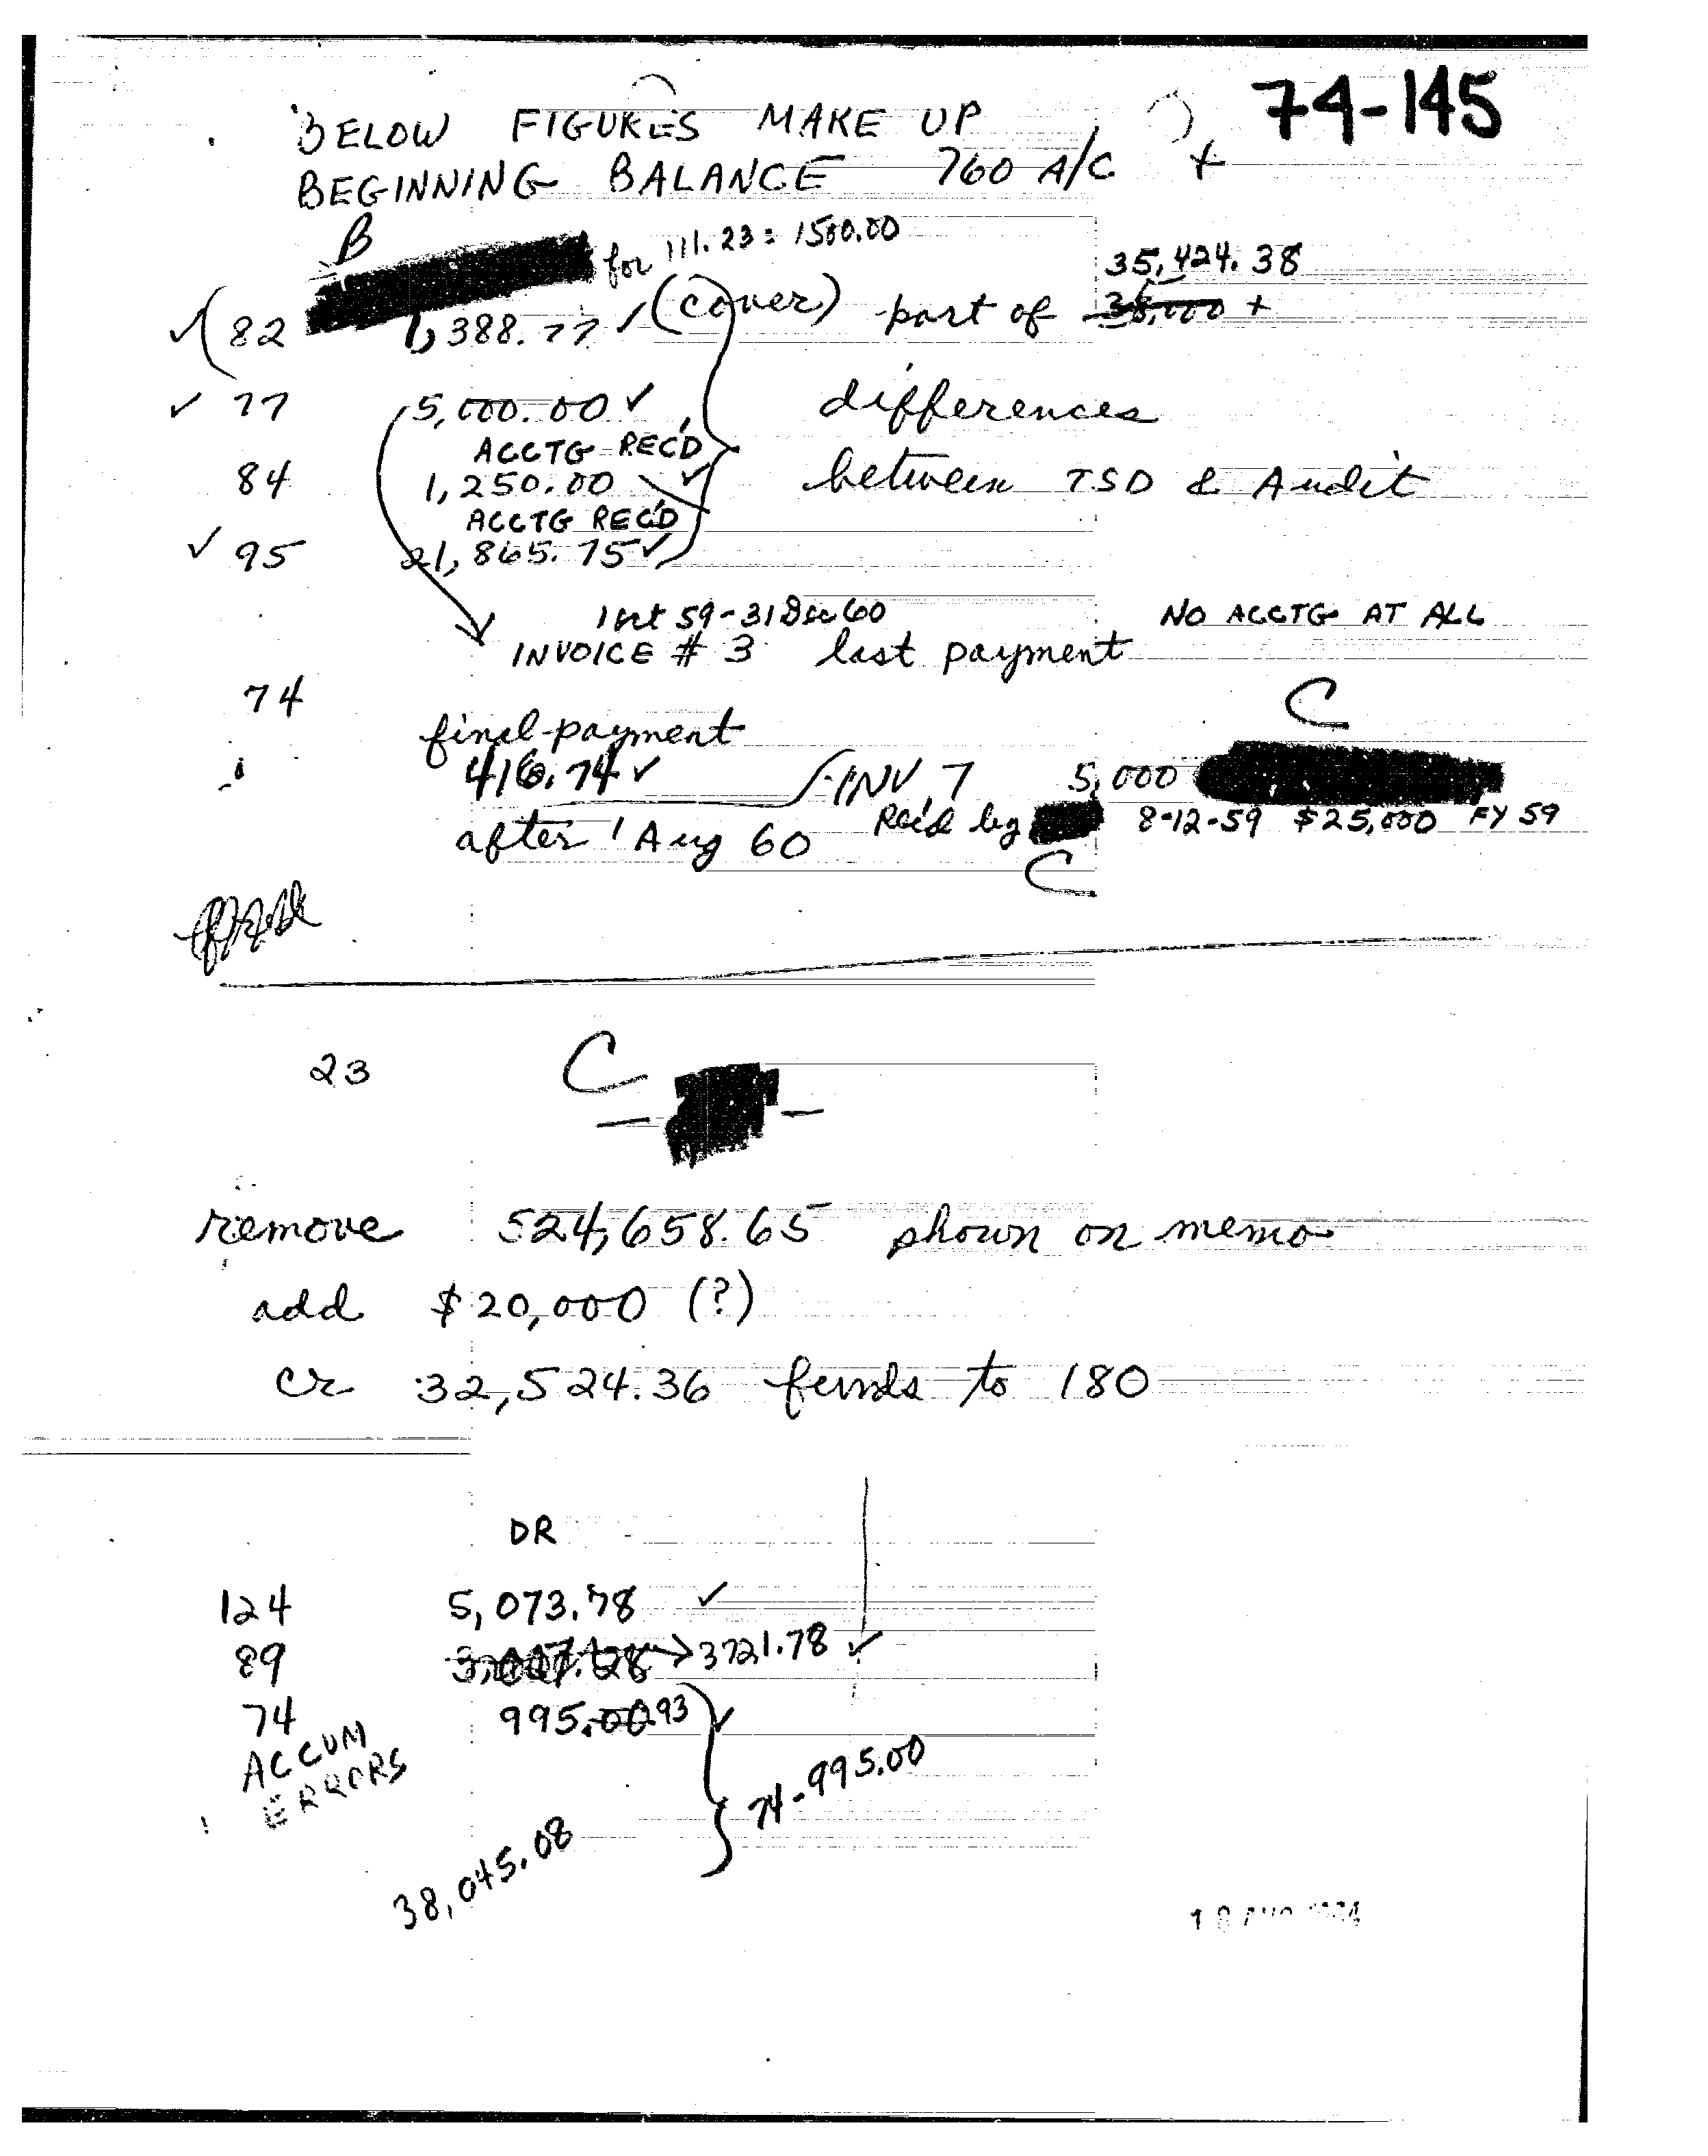 74-145
BELOW FIGURES MAKE UP
BEGINNING BALANCE 760 A/C +
B
for 111.23 = 1500.00
35,424.38
82 1,388.77 ✓ (cover) part of 38,000 +
✓ 77 5,000.00 ✓ differences
ACCTG REC'D
84 1,250.00 ✓ between TSD & Audit
ACCTG REC'D
✓ 95 21,865.75 ✓
1 Oct 59 - 31 Dec 60 NO ACCTG AT ALL
INVOICE # 3 last payment
74
C
final payment
416.74 ✓ INV 7 5,000
after 1 Aug 60 Rec'd by 8-12-59 $25,000 FY 59
C
23 C
remove 524,658.65 shown on memo
add $20,000 (?)
cr 32,524.36 funds to 180
DR
124 5,073.78 ✓
89 → 3721.78 ✓
74 995.00.93 ✓
ACCUM
ERRORS
74-995.00
38,045.08